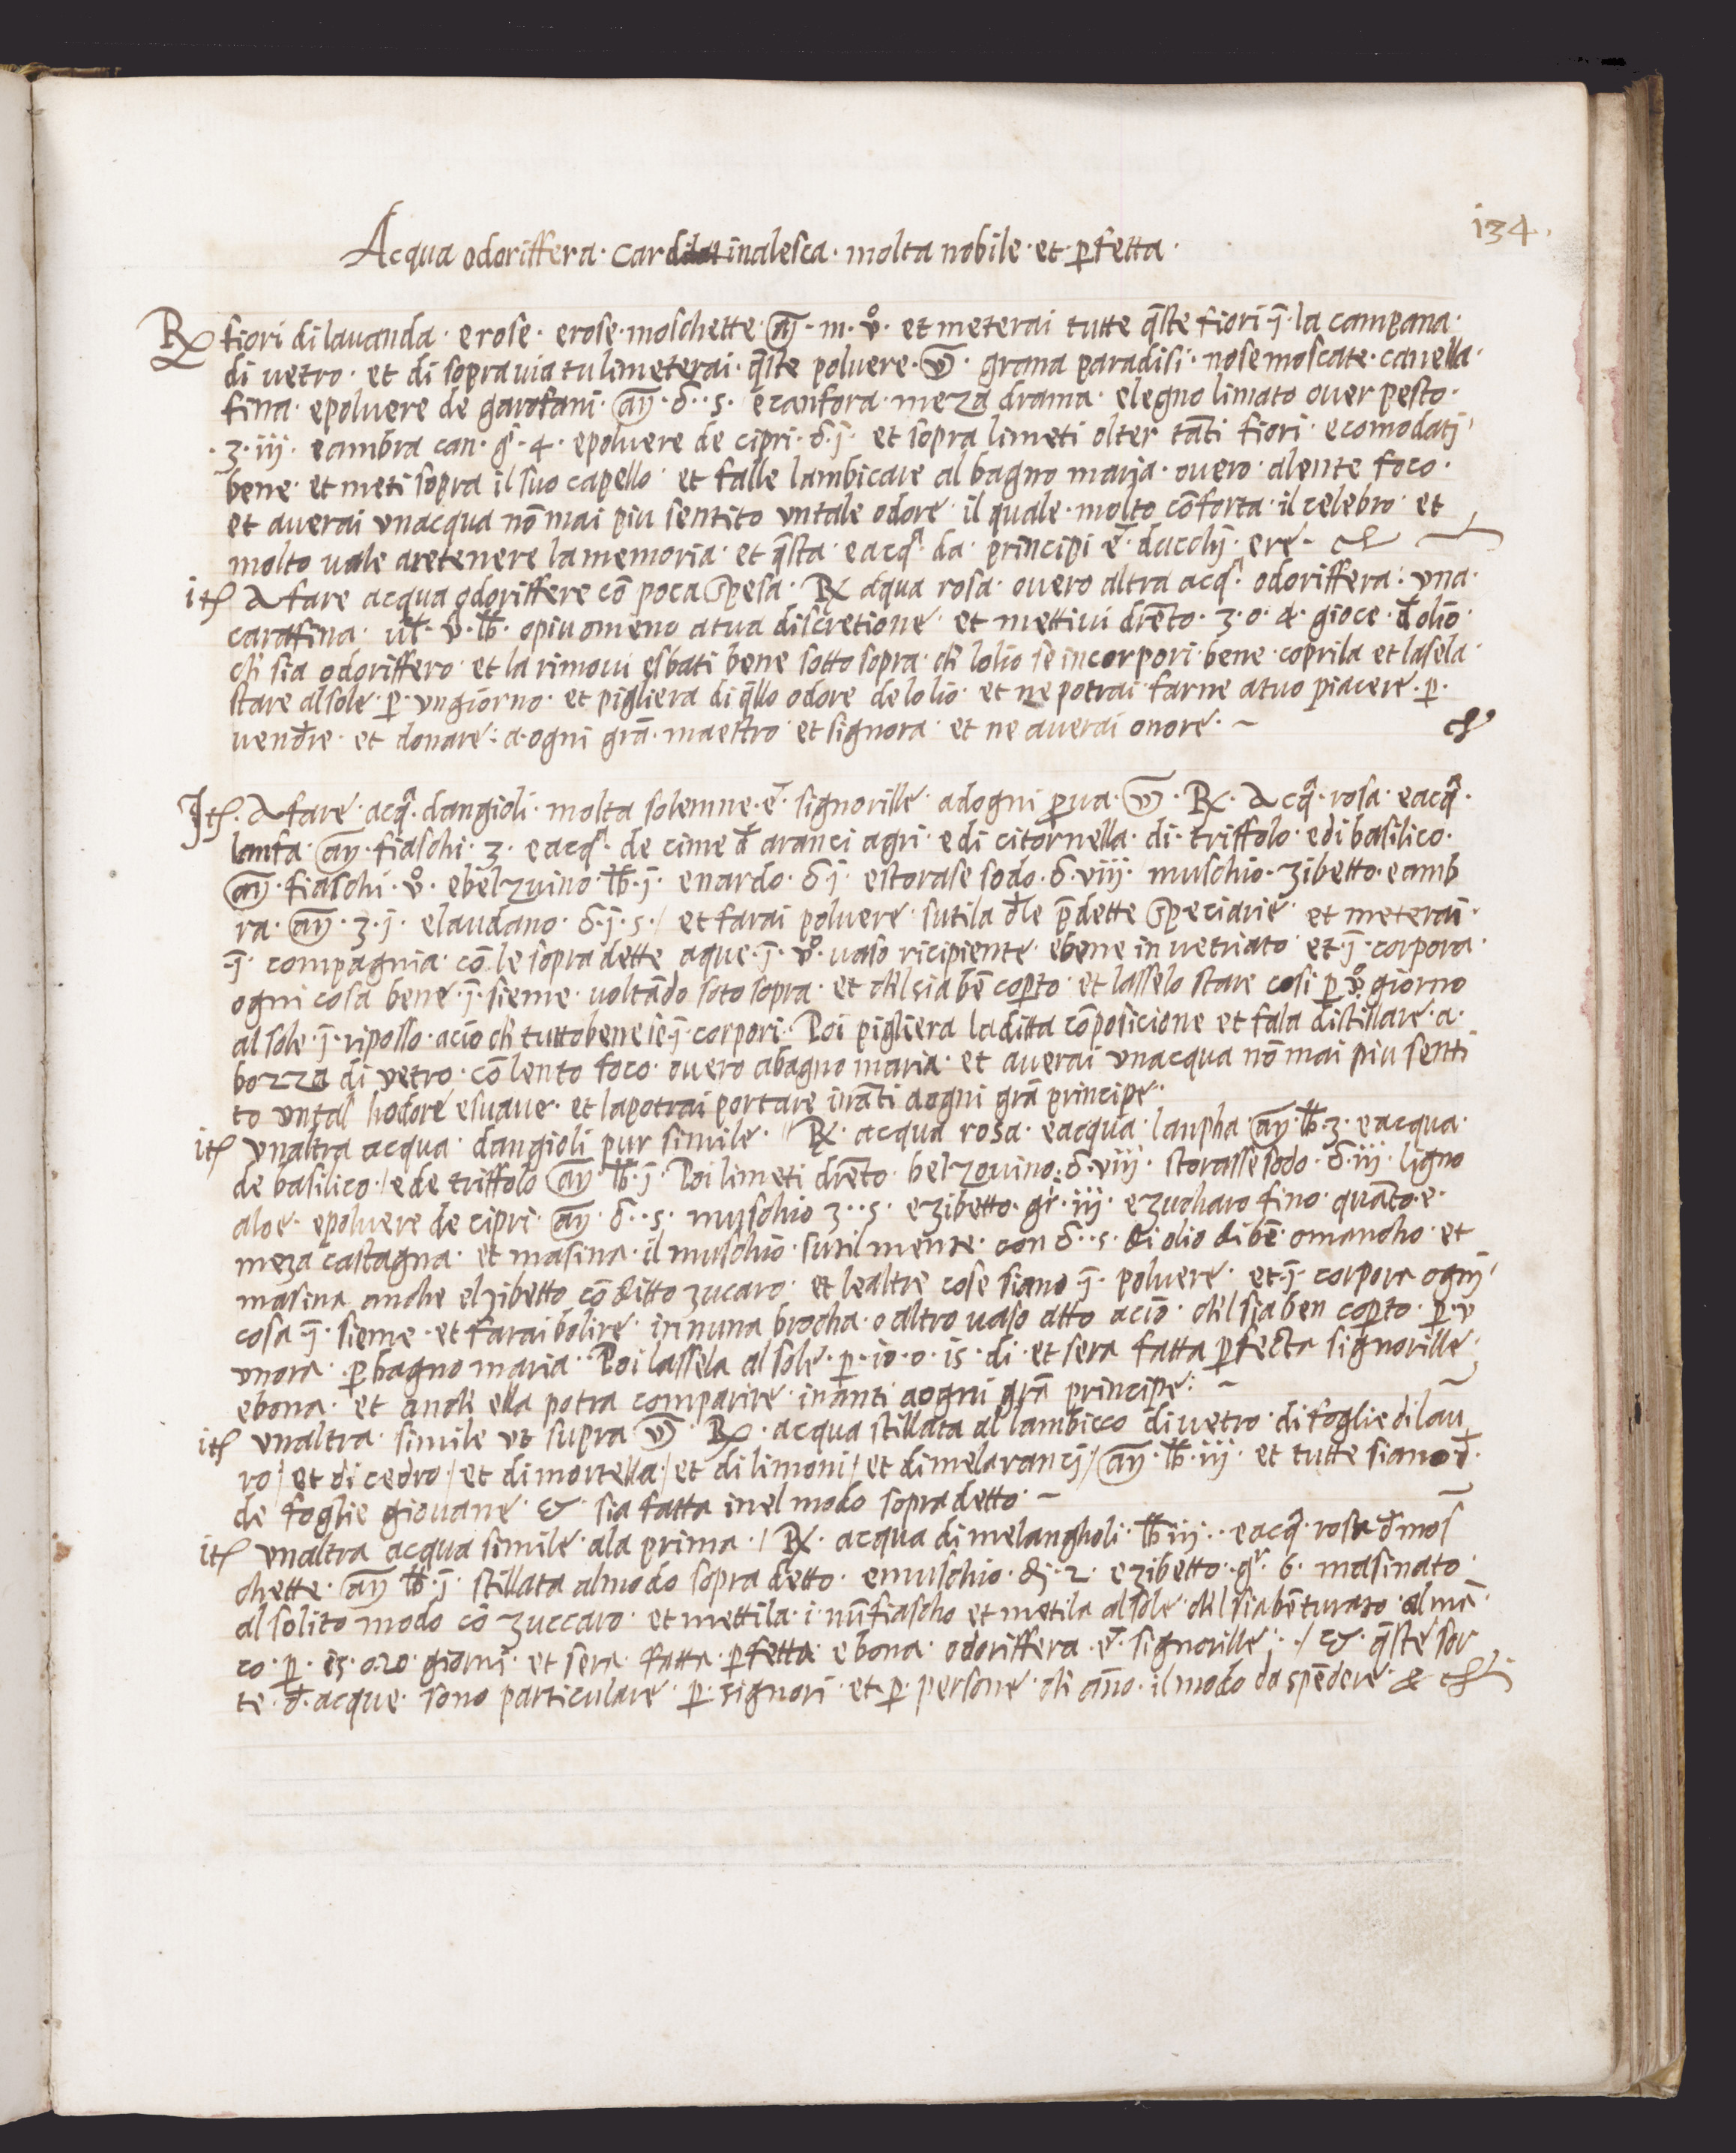 134.
Acqua odoriffera · Cardinalesca · molta nobile · et · p̱fetta ·
℞ fiori di lauanda · e rose · e rose · moschette · aỹ · m · v̊ · et meterai tutte q̄ste fiori · ī · la campana ·
di uetro · et di sopra uia tu li meterai · q̄ste poluere · grana paradisi · nose moscate · canella ·
fina · e poluere de garofani · aỹ · δ · s · e canfora · meza drama · e legno limato ouer pesto ·
· ʒ · iij · e ambra can · gr̄ · 4 · e poluere de cipri · δ · j · et sopra li meti olter tāti fiori · e comodatj
bene · et meti sopra il suo capello · et falle lambicare al bagno maria · ouero · a lente foco ·
et auerai vnacqua nō mai piu sentito vntale odore · il quale · molto cōforta · il celebro · et
molto uale a retenere la memoria · et q̄sta · e acq̃ · da · principi
itꝭ A fare acqua odoriffere cō poca spesa · ℞ aqua rosa · ouero altra acq̃ · odoriffera · vna ·
caraffina · o piu o meno a tua discretione · et mettiui drēto · 3 · o · 4 · gioce · đ olio ·
ch̄ sia odoriffero · et la rimoui e sbati bene sotto sopra · ch̄ lolio se incorpori · bene · coprila et lasela ·
stare al sole · p̱ · vn giorno · et pigliera di q̄llo odore de lolio · et ne potrai farne a tuo piacere · p̱ ·
vendre · et donare · a · ogni grā · maestro et signora · et ne auerai onore · ~
Itꝭ · A fare · acq̃ · dangioli · molta solemne · e · signorille · adogni prua · ℞ · Acq̃ · rosa · e acq̃ ·
lanfa · aỹ · fiaschi · 3 · e acq̃ · de cime đ aranci agri · e di citornella · di · triffolo · e di basilico ·
aỹ · fiaschi · v̊ · e belzuino · ℔ · j · e nardo · δ · j · e storase sodo · δ · viij · muschio · zibetto · e amb
ra · aỹ · ʒ · j · e laudano · δ · j · s · / et farai poluere · sutila đle p̄dette speciarie · et meterai ·
· ī · compagnia · cō le sopra dette aque · ī · v̊ · uaso ricipiente · e bene inuetriato · et · ī · corpora ·
ogni cosa bene · ī · sieme · uoltādo soto sopra · et ch̄l sia bē cop̱to · et lasselo stare cosi p̱ v̊ giorno
al sole · ī · ripollo · acio ch̄ tutto bene se ī · corpori · Poi pigliera la ditta cōposicione et fala distillare · a ·
bozza di vetro · cō lento foco · ouero a bagno maria · et auerai vnacqua nō mai piu senti
to vntal hodore e suaue · et la potrai portare ināti a ogni grā principe ·
itꝭ vnaltra acqua · dangioli pur simile · ℞ · acqua rosa · e acqua · lanpha · aỹ · ℔ · 3 · e acqua ·
de basilico · / e de triffolo aỹ · ℔ · j · Poi li meti drēto · belzouino · δ · viij · storasse sodo · δ · iij · ligno
aloe · e poluere de cipri · aỹ · δ · s · muschio ʒ · s · e zibetto · gr̄ · iij · e zucharo fino · quanto · e ·
meza castagna · et masina · il muschio · sutilmente · con δ · s · di olio di bē · o mancho · et
masina anche el zibetto cō ditto zucaro · et le altre cose siano ī · poluere · et · ī · corpora ognj
cosa ī · sieme · et farai bolire · in nuna brocha · o altro uaso atto acio · ch̄l sia ben cop̱to · p̱ · v
vnora · p̱ bagno maria · Poi lassela al sole · p̱ · io · o · is · di · et sera fatta p̱fecta signorille ·
e bona · et anch̄ ella potra comparire · inanti a ogni grā principe · ~
itꝭ vnaltra · simile vt supra · ℞ · acqua stillata al lambicco di uetro · di foglie di lau
ro / et di cedro / et di mortella / et di limoni / et di melarancj / aỹ · ℔ · iij · et tutte siano đ ·
de foglie giouane · & · sia fatta inel modo sopra detto · ~
itꝭ vnaltra acqua simile · ala prima · / ℞ · acqua di melangholi · ℔ iij · e acq̃ · rosa đ mos
chette · aỹ ℔ · j · stillata al modo sopra detto · e muschio · e zibetto · gr̄ · 6 · masinato ·
al solito modo cō zuccaro · et mettila · i · nūfiascho et metila al sole · ch̄l sia bē turato · al mā ·
co · p̱ · is · o · 20 · giorni · et sera · fatta · p̱fetta · e bona · odoriffera · e · signorille · / & · q̄ste sor
te · đ · acque · sono particulare · p̱ · signori · et · p̱ · persone · ch̄ āno · il modo da spēdere · &